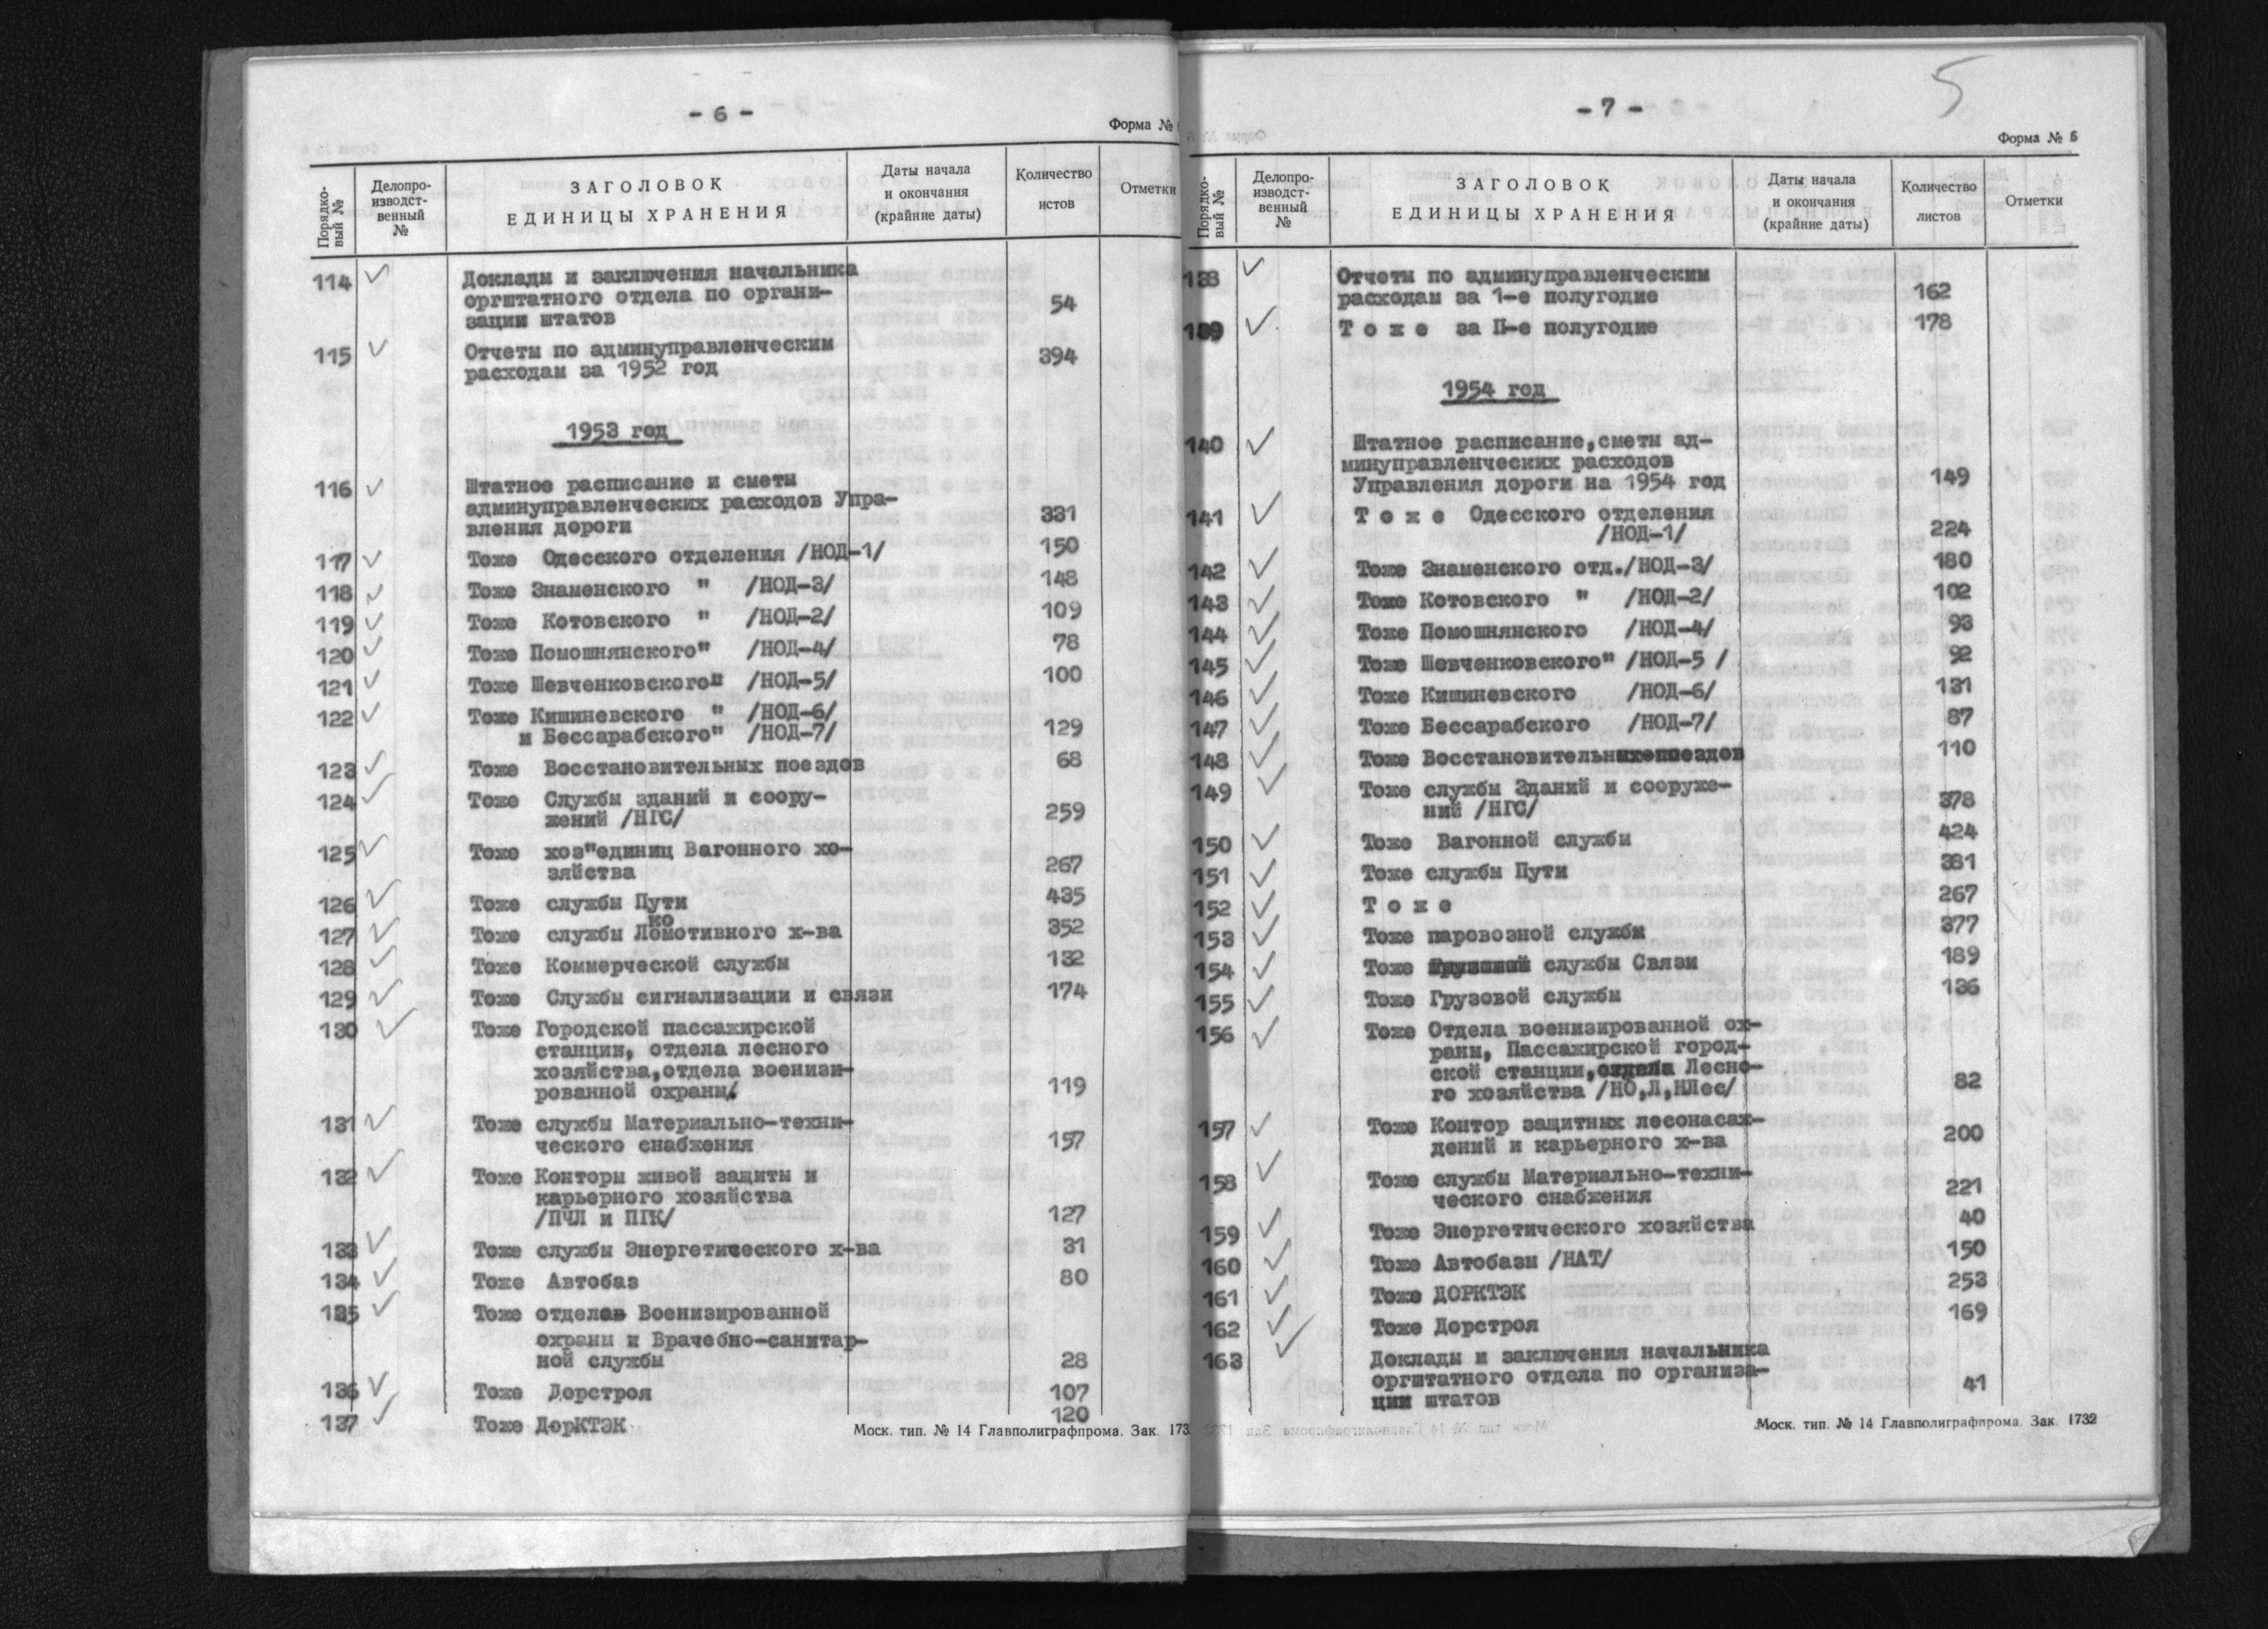 - 6 -
Форма №
Порядко-
вый №
Делопро-
изводст-
венный
№
ЗАГОЛОВОК
ЕДИНИЦЫ ХРАНЕНИЯ
Даты начала
и окончания
(крайние даты)
Количество
истов
Отметки
114 Доклады и заключения начальника
оргштатного отдела по органи-
зации штатов 54
115 Отчеты по админуправленческим
расходам за 1952 год 394
1953 год
116 Штатное расписание и сметы
админуправленческих расходов Упра-
вления дороги 331
117 Тоже Одесского отделения /НОД-1/ 150
118 Тоже Знаменского " /НОД-3/ 148
119 Тоже Котовского " /НОД-2/ 109
120 Тоже Помошнянского" /НОД-4/ 78
121 Тоже Шевченковского" /НОД-5/ 100
122 Тоже Кишиневского " /НОД-6/
и Бессарабского" /НОД-7/ 129
123 Тоже Восстановительных поездов 68
124 Тоже Службы зданий и соору-
жений /НГС/ 259
125 Тоже хоз"единиц Вагонного хо-
зяйства 267
126 Тоже службы Пути 435
ко
127 Тоже службы Ломотивного х-ва 352
128 Тоже Коммерческой службы 132
129 Тоже Службы сигнализации и связи 174
130 Тоже Городской пассажирской
станции, отдела лесного
хозяйства,отдела военизи-
рованной охраны/ 119
131 Тоже службы Материально-техни-
ческого снабжения 157
132 Тоже Конторы живой защиты и
карьерного хозяйства
/ПЧЛ и ПГК/ 127
133 Тоже службы Энергетического х-ва 31
134 Тоже Автобаз 80
135 Тоже отделов Военизированной
охраны и Врачебно-санитар-
ной службы 28
136 Тоже Дорстроя 107
137 Тоже ДорКТЭК 120
Моск. тип. № 14 Главполиграфпрома. Зак. 173
- 7 -
5
Форма № 6
Порядко-
вый №
Делопро-
изводст-
венный
№
ЗАГОЛОВОК
ЕДИНИЦЫ ХРАНЕНИЯ
Даты начала
и окончания
(крайние даты)
Количество
листов
Отметки
138 Отчеты по админуправленческим
расходам за 1-е полугодие 162
139 Т о ж е за П-е полугодие 178
1954 год
140 Штатное расписание,сметы ад-
минуправленческих расходов
Управления дороги на 1954 год 149
141 Т о ж е Одесского отделения
/НОД-1/ 224
142 Тоже Знаменского отд./НОД-3/ 180
143 Тоже Котовского " /НОД-2/ 102
144 Тоже Помошнянского /НОД-4/ 93
145 Тоже Шевченковского" /НОД-5 / 92
146 Тоже Кишиневского /НОД-6/ 131
147 Тоже Бессарабского /НОД-7/ 87
148 Тоже Восстановительных поездов 110
149 Тоже службы Зданий и сооруже-
ний /НГС/ 378
150 Тоже Вагонной службы 424
151 Тоже службы Пути 381
152 Т о ж е 267
153 Тоже паровозной службы 377
154 Тоже службы Связи 189
155 Тоже Грузовой службы 136
156 Тоже Отдела военизированной ох-
раны, Пассажирской город-
ской станции,отдела Лесно-
го хозяйства /НО,Л,НЛес/ 82
157 Тоже Контор защитных лесонасаж-
дений и карьерного х-ва 200
158 Тоже службы Материально-техни-
ческого снабжения 221
159 Тоже Энергетического хозяйства 40
160 Тоже Автобазы /НАТ/ 150
161 Тоже ДОРКТЭК 253
162 Тоже Дорстроя 169
163 Доклады и заключения начальника
оргштатного отдела по организа-
ции штатов 41
Моск. тип. № 14 Главполиграфпрома. Зак. 1732